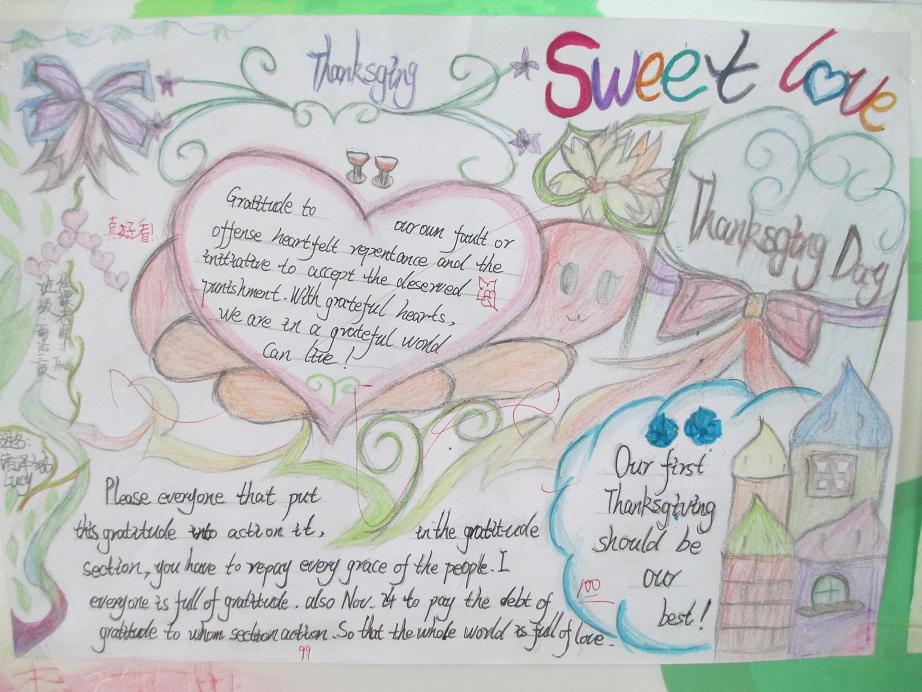 Thanksging
Sweet love
Thanksging Day
真好看!
Gratitude to ourown fault or
offense heartfelt repentance and the
initiative to accept the deserved
punishment. With grateful hearts,
we are in a grateful world
Can live!
Lucy
Our first
Thanksgiving
should be
our
best!
100
Please everyone that put
this gratitude into action it, in the gratitude
section, you have to repay every grace of the people. I
everyone is full of gratitude. also Nov. 24 to pay the debt of
gratitude to whom section action. So that the whole world is full of love.
99